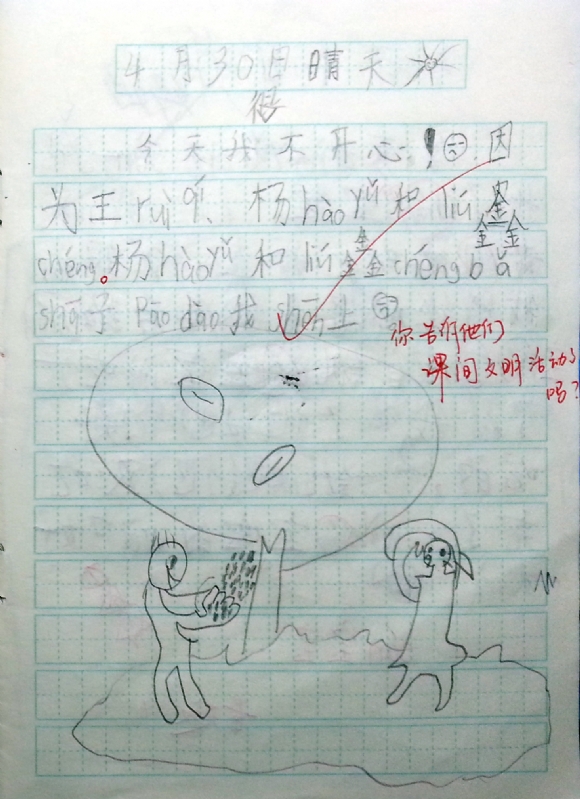 4月30日晴天
很
今天我不开心!因
为王ruì qí、杨hào yǔ和liú鑫
chéng。杨hào yǔ和liú鑫chéng bǎ
shā子pāo dào我shēn上
你告诉他们
课间文明活动了
吗?